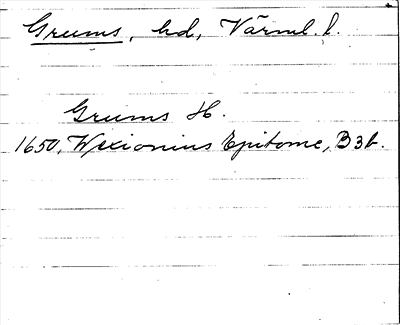 Grums, hd, Värml. l.
Grums H.
1650, Wexionius Epitome, B3b.